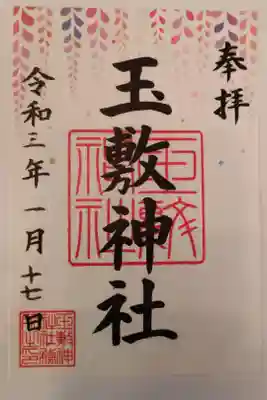 奉拝
玉敷神社
令和三年一月十七日
玉敷神社
玉敷神社社務之印